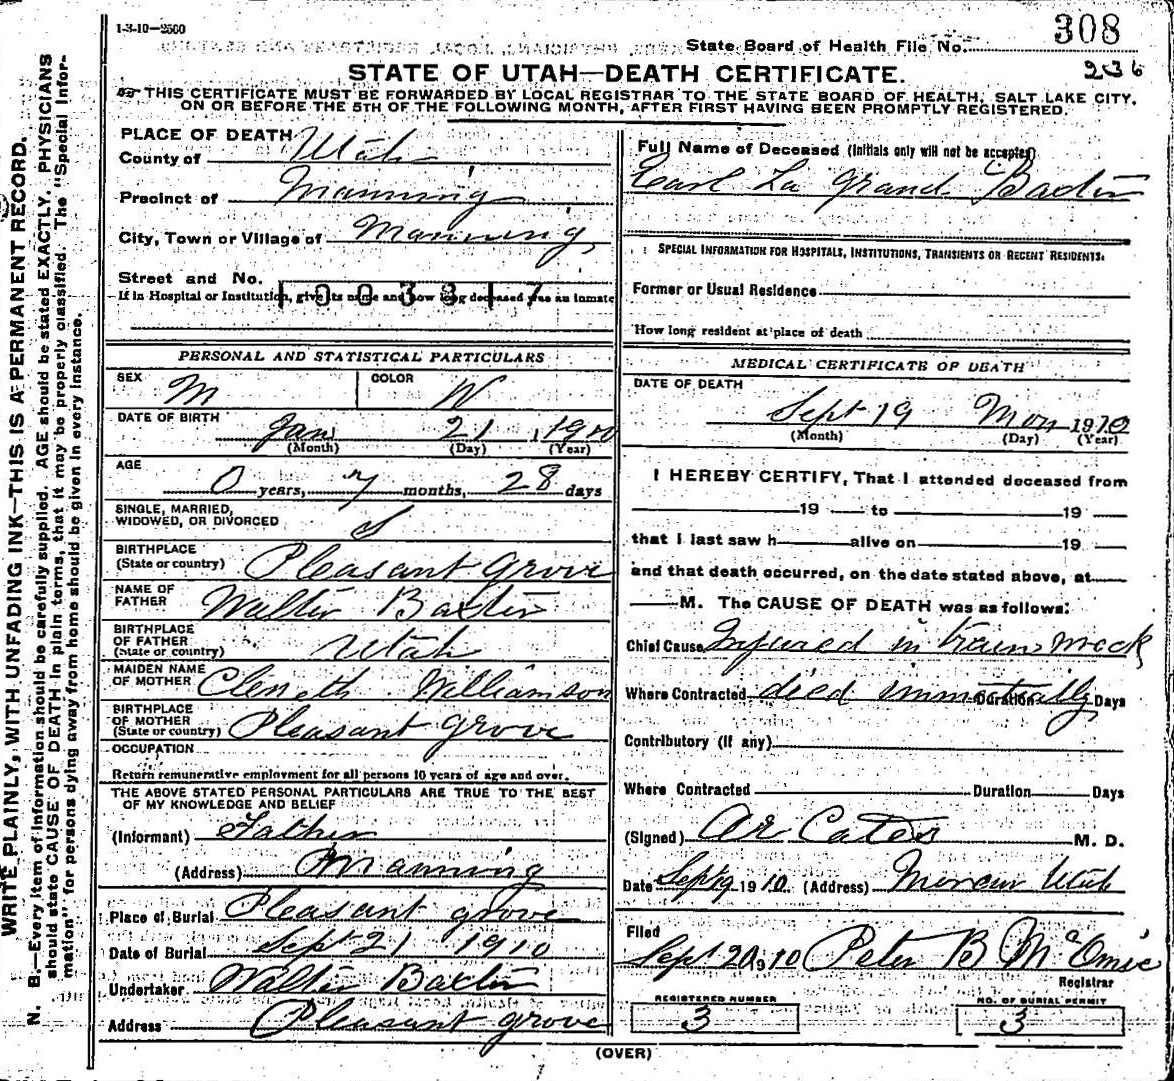 1-3-10—2500
State Board of Health File No. 308
236
STATE OF UTAH—DEATH CERTIFICATE.
THIS CERTIFICATE MUST BE FORWARDED BY LOCAL REGISTRAR TO THE STATE BOARD OF HEALTH, SALT LAKE CITY,
ON OR BEFORE THE 5TH OF THE FOLLOWING MONTH, AFTER FIRST HAVING BEEN PROMPTLY REGISTERED.
WRITE PLAINLY, WITH UNFADING INK—THIS IS A PERMANENT RECORD.
N. B.—Every item of information should be carefully supplied. AGE should be stated EXACTLY. PHYSICIANS
should state CAUSE OF DEATH in plain terms, that it may be properly classified. The "Special Infor-
mation" for persons dying away from home should be given in every instance.
PLACE OF DEATH
County of Utah
Precinct of Manning
City, Town or Village of Manning
Street and No.
003317
If in Hospital or Institution, give its name and how long deceased was an inmate
PERSONAL AND STATISTICAL PARTICULARS
SEX M COLOR W
DATE OF BIRTH Jan 21, 1910
(Month) (Day) (Year)
AGE
0 years, 7 months, 28 days
SINGLE, MARRIED,
WIDOWED, OR DIVORCED S
BIRTHPLACE
(State or country) Pleasant Grove
NAME OF
FATHER Walter Baxter
BIRTHPLACE
OF FATHER
(State or country) Utah
MAIDEN NAME
OF MOTHER Williamson
BIRTHPLACE
OF MOTHER
(State or country) Pleasant Grove
OCCUPATION
Return remunerative employment for all persons 10 years of age and over.
THE ABOVE STATED PERSONAL PARTICULARS ARE TRUE TO THE BEST
OF MY KNOWLEDGE AND BELIEF
(Informant) Father
(Address) Manning
Place of Burial Pleasant grove
Date of Burial Sept 21 1910
Undertaker Walter Baxter
Address Pleasant grove
Full Name of Deceased (Initials only will not be accepted)
Earl La Grand Baxter
SPECIAL INFORMATION FOR HOSPITALS, INSTITUTIONS, TRANSIENTS OR RECENT RESIDENTS.
Former or Usual Residence
How long resident at place of death
MEDICAL CERTIFICATE OF DEATH
DATE OF DEATH
Sept 19 Mon 1910
(Month) (Day) (Year)
I HEREBY CERTIFY, That I attended deceased from
19 to 19
that I last saw h alive on 19
and that death occurred, on the date stated above, at
M. The CAUSE OF DEATH was as follows:
Chief Cause Injured in train wreck
Where Contracted died Duration Days
Contributory (if any)
Where Contracted Duration Days
(Signed) M. D.
Date Sept 19 1910 (Address) Mercur Utah
Filed
Sept 20, 1910 Peter B
Registrar
REGISTERED NUMBER
3
NO. OF BURIAL PERMIT
3
(OVER)